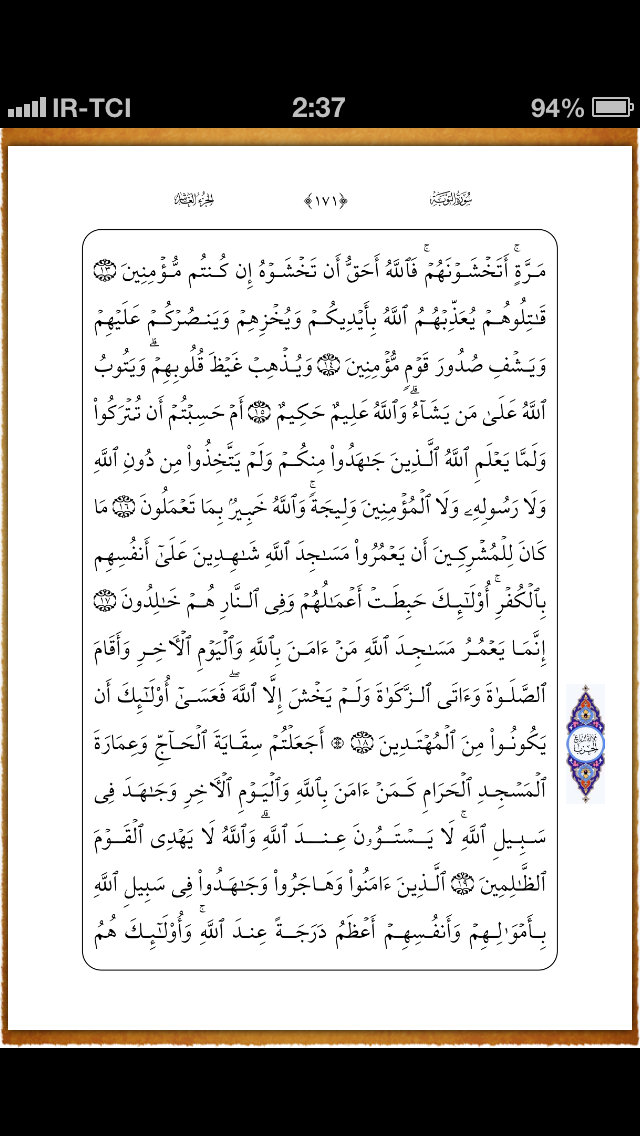 IR-TCI 2:37 94%
سُورَةُ التَّوْبَةِ ﴿١٧١﴾ الجزء العاشر
مَرَّةٍ ۚ أَتَخْشَوْنَهُمْ ۚ فَاللَّهُ أَحَقُّ أَن تَخْشَوْهُ إِن كُنتُم مُّؤْمِنِينَ ١٣
قَٰتِلُوهُمْ يُعَذِّبْهُمُ ٱللَّهُ بِأَيْدِيكُمْ وَيُخْزِهِمْ وَيَنصُرْكُمْ عَلَيْهِمْ
وَيَشْفِ صُدُورَ قَوْمٍ مُّؤْمِنِينَ ١٤ وَيُذْهِبْ غَيْظَ قُلُوبِهِمْ ۗ وَيَتُوبُ
ٱللَّهُ عَلَىٰ مَن يَشَآءُ ۗ وَٱللَّهُ عَلِيمٌ حَكِيمٌ ١٥ أَمْ حَسِبْتُمْ أَن تُتْرَكُوا۟
وَلَمَّا يَعْلَمِ ٱللَّهُ ٱلَّذِينَ جَٰهَدُوا۟ مِنكُمْ وَلَمْ يَتَّخِذُوا۟ مِن دُونِ ٱللَّهِ
وَلَا رَسُولِهِۦ وَلَا ٱلْمُؤْمِنِينَ وَلِيجَةً ۚ وَٱللَّهُ خَبِيرٌۢ بِمَا تَعْمَلُونَ ١٦ مَا
كَانَ لِلْمُشْرِكِينَ أَن يَعْمُرُوا۟ مَسَٰجِدَ ٱللَّهِ شَٰهِدِينَ عَلَىٰٓ أَنفُسِهِم
بِٱلْكُفْرِ ۚ أُو۟لَٰٓئِكَ حَبِطَتْ أَعْمَٰلُهُمْ وَفِى ٱلنَّارِ هُمْ خَٰلِدُونَ ١٧
إِنَّمَا يَعْمُرُ مَسَٰجِدَ ٱللَّهِ مَنْ ءَامَنَ بِٱللَّهِ وَٱلْيَوْمِ ٱلْءَاخِرِ وَأَقَامَ
ٱلصَّلَوٰةَ وَءَاتَى ٱلزَّكَوٰةَ وَلَمْ يَخْشَ إِلَّا ٱللَّهَ ۖ فَعَسَىٰٓ أُو۟لَٰٓئِكَ أَن
يَكُونُوا۟ مِنَ ٱلْمُهْتَدِينَ ١٨ ۞ أَجَعَلْتُمْ سِقَايَةَ ٱلْحَآجِّ وَعِمَارَةَ
ٱلْمَسْجِدِ ٱلْحَرَامِ كَمَنْ ءَامَنَ بِٱللَّهِ وَٱلْيَوْمِ ٱلْءَاخِرِ وَجَٰهَدَ فِى
سَبِيلِ ٱللَّهِ ۚ لَا يَسْتَوُۥنَ عِندَ ٱللَّهِ ۗ وَٱللَّهُ لَا يَهْدِى ٱلْقَوْمَ
ٱلظَّٰلِمِينَ ١٩ ٱلَّذِينَ ءَامَنُوا۟ وَهَاجَرُوا۟ وَجَٰهَدُوا۟ فِى سَبِيلِ ٱللَّهِ
بِأَمْوَٰلِهِمْ وَأَنفُسِهِمْ أَعْظَمُ دَرَجَةً عِندَ ٱللَّهِ ۚ وَأُو۟لَٰٓئِكَ هُمُ